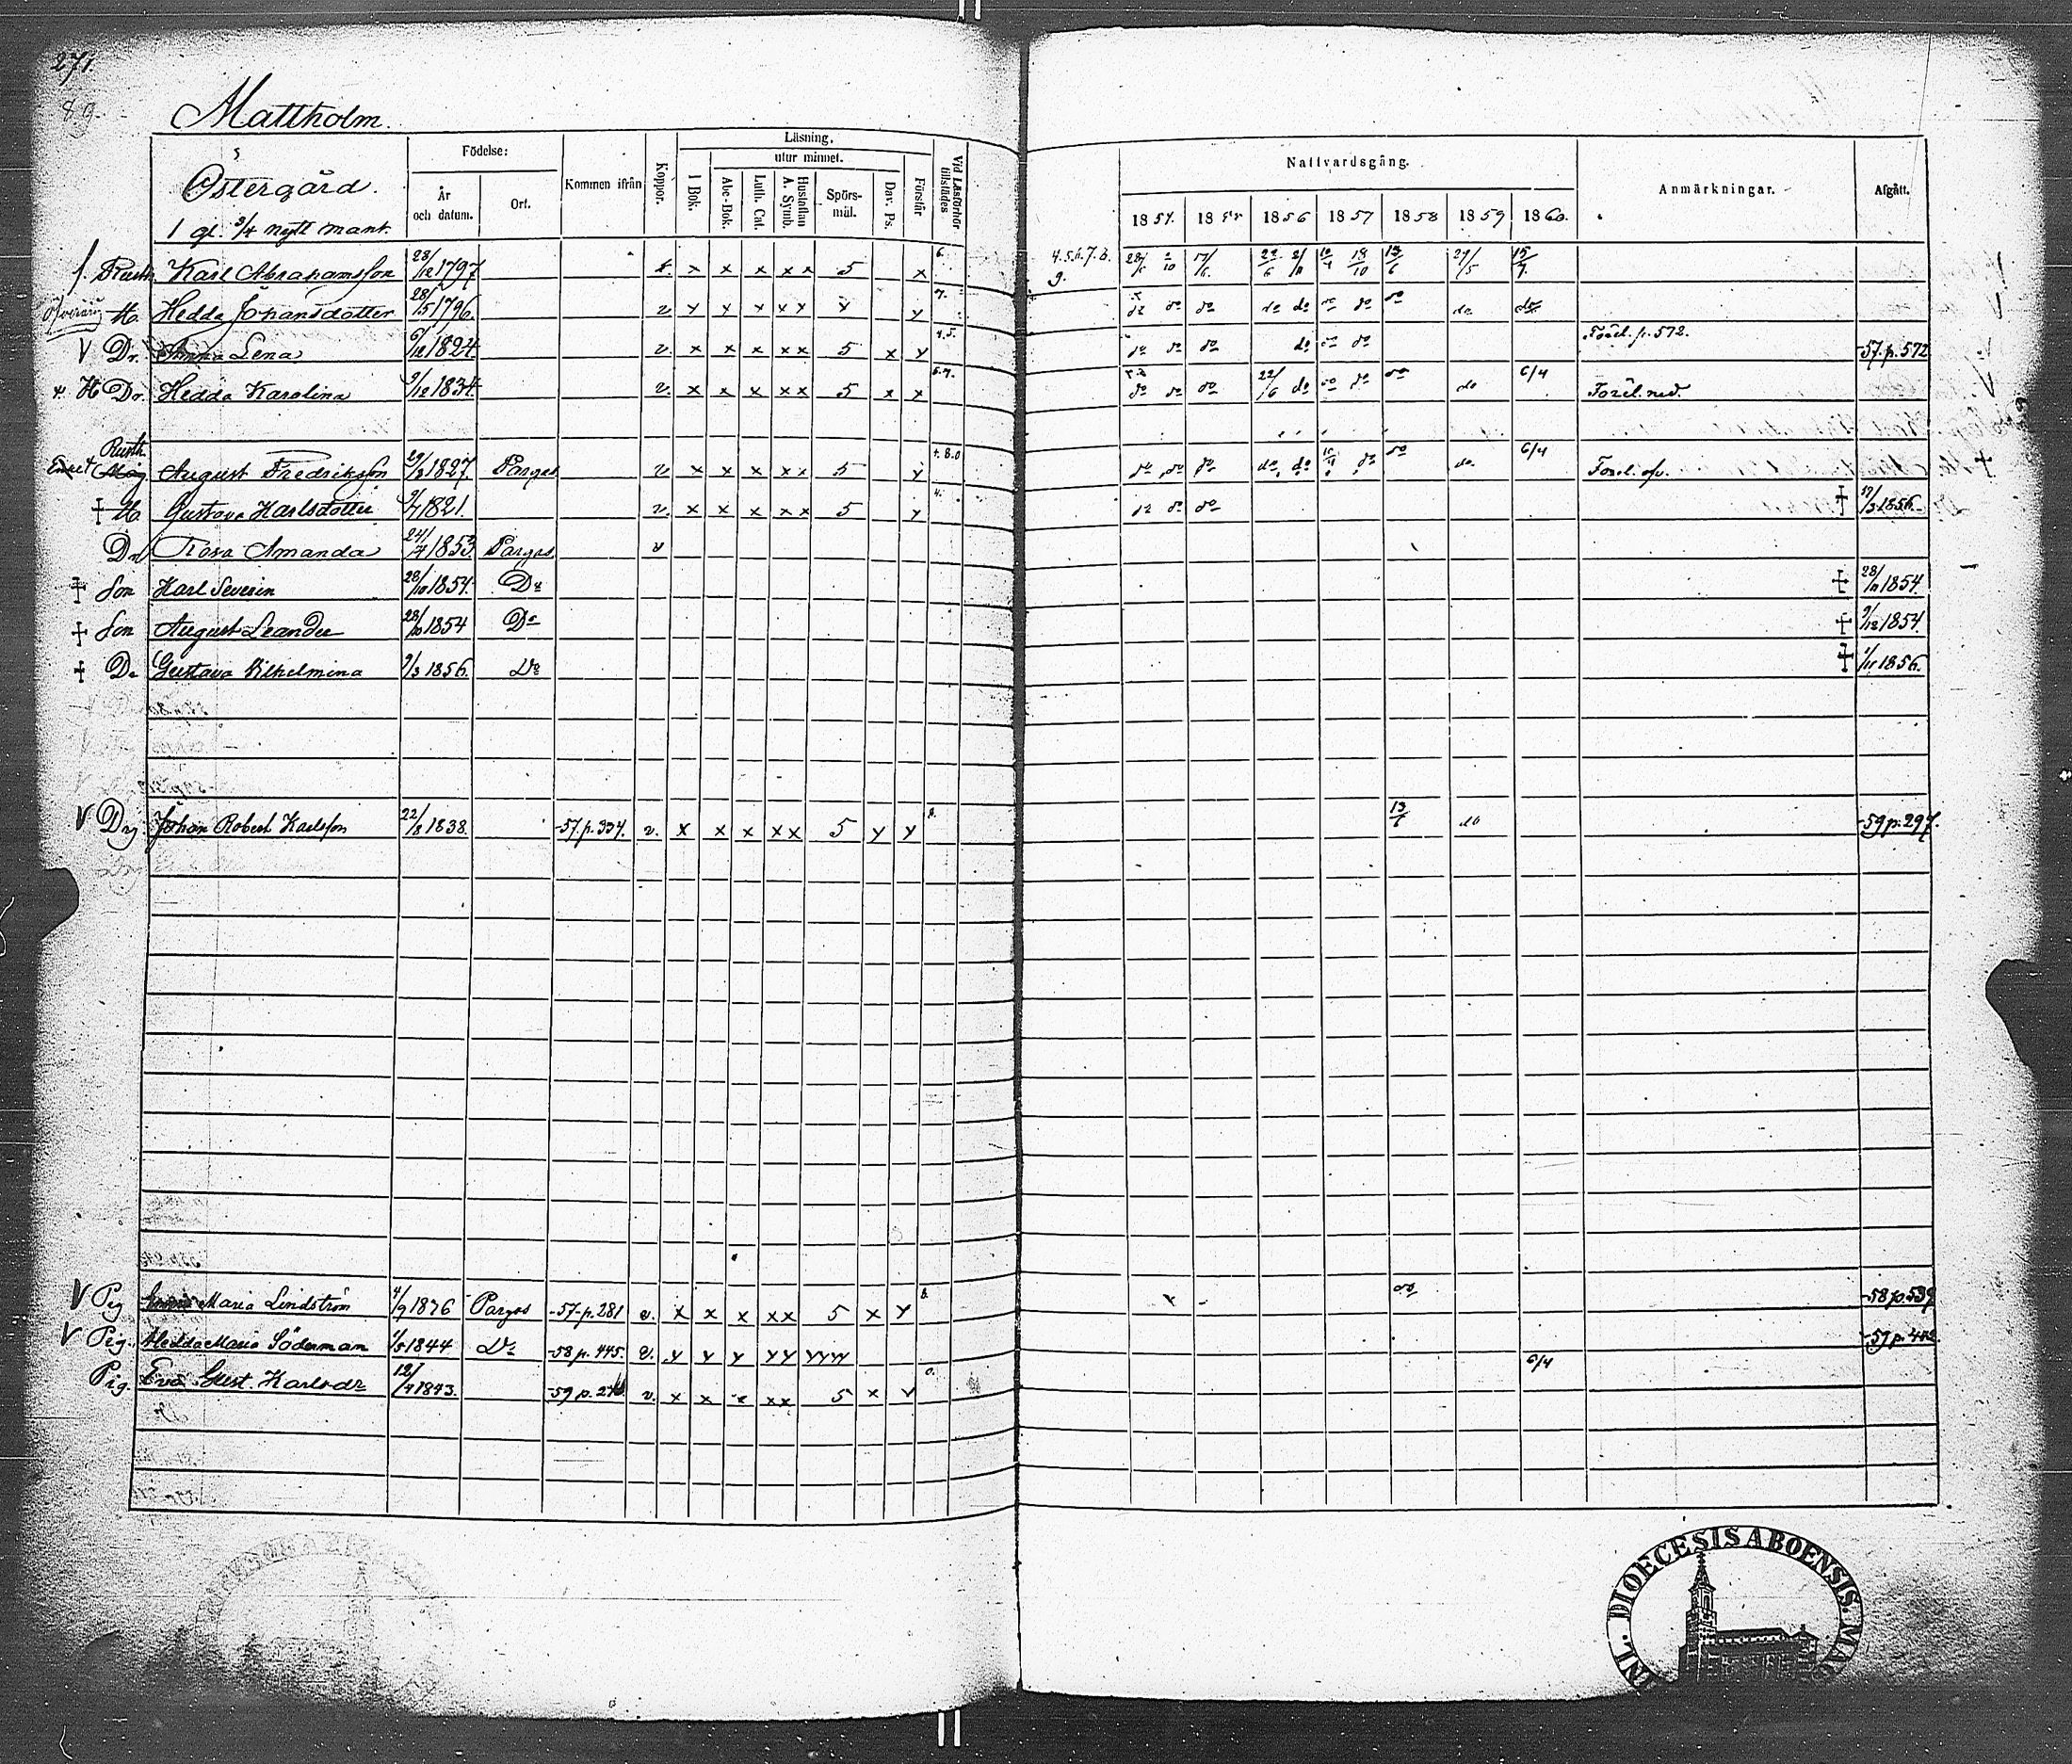 271.
89.
Mattholm.
Östergård.
1 gl. 3/4 nytt mant.
Födelse:
År och datum.
Ort.
Kommen ifrån
Koppor.
Läsning.
I Bok.
utur minnet.
Abc-Bok.
Luth. Cat.
Hustaflan A. Symb.
Spörsmål.
Dav. Ps.
Förstår
Vid Läsförhör tillstädes
Nattvardsgång.
1854. 1855 1856 1857 1858 1859 1860.
Anmärkningar.
Afgått.
f. Rusth. Karl Abrahamsson 28/12 1797 x x x x x 5 x 6. 4.5.6.7.8.9. 2/10 17/6 22/6 18/10 13/6 29/5 15/7.
H. Hedda Johansdotter 28/5 1796. v x x x x x x x 7. do do do do do do do do do do
V Dr. Anna Lena 6/12 1824. v. x x x x x 5 x x 4.5. do do do do do do Förel. p. 572. -57.p.572
H Dr. Hedda Karolina 9/12 1834. v. x x x x x 5 x x 5.7. do do do 22/6 do do do do do 6/4 Förel. ned.
Rusth.
Enkl. Måg August Fredriksson 1827. Pargas v x x x x x 5 x 4.8.0 do do do do do do do do 6/4 Förel. ofv.
† H. Gustava Karlsdotter 9/7 1821. v. x x x x x 5 x 4. do do do † 17/3 1856.
Dr Rosa Amanda 24/7 1853 Pargas v
† Son Karl Severin 28/10 1854. Do † 28/11 1854.
† Son August Leander 28/10 1854 Do † 9/12 1854.
† Dr Gustava Vilhelmina 9/3 1856. Do † 1/11 1856.
V Drg. Johan Robert Karlsson 22/8 1838. -57.p.334. v. x x x x x 5 x x 8. 13/6 do -59 p. 297.
V Pig Maria Lindström 4/9 1836 Pargas -57-p.281 v. x x x x x 5 x x 8. x - do -58 p. 539
V Pig. Hedda Maria Söderman 1/5 1844 Do -58 p. 445. v. x x x x x x x x x -59 p.
Pig. Eva Gust. Karlsdr 12/4 1843. -59 p. v. x x x x x 5 x x 0. 6/4
DIOECESIS ABOENSIS.